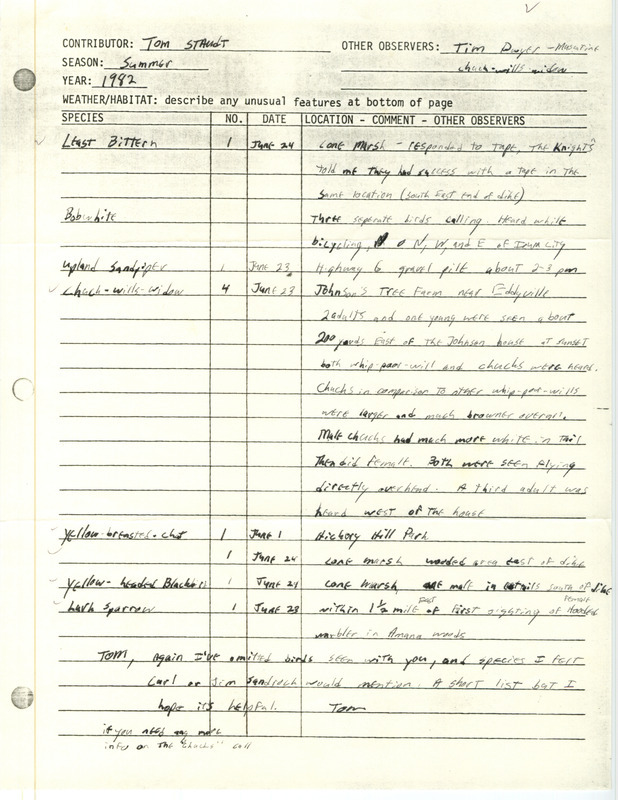 CONTRIBUTOR: Tom STAUDT
OTHER OBSERVERS: Tim Dwyer - Moorine
SEASON: Summer
chuck-wills-widow
YEAR: 1982
WEATHER/HABITAT: describe any unusual features at bottom of page
SPECIES NO. DATE LOCATION - COMMENT - OTHER OBSERVERS
Least Bittern 1 June 24 Cone Marsh - responded to Tape, The Knights
told me They had success with a tape in The
same location (south East end of dike)
Bobwhite Three seperate birds calling. Heard while
bicycling, N, W, and E of Iowa City
Upland Sandpiper 1 June 23 Highway 6 gravel pile about 2-3 pm
Chuck-wills-widow 4 June 23 Johnson's TREE Farm near Eddyville
2 adults and one young were seen about
200 yards East of The Johnson house at sunset
both whip-poor-will and chucks were heard.
Chucks in comparison To other whip-poor-wills
were larger and much browner overall.
Male chucks had much more white in Tail
Then did female. Both were seen flying
directly overhead. A third adult was
heard west of The house
Yellow-breasted-chat 1 June 1 Hickory Hill Park
1 June 24 cone marsh wooded area East of dike
Yellow-headed Blackbird 1 June 24 Cone Marsh, one male in cattails south of dike
Lark Sparrow 1 June 28 within 1 1/2 mile East of first sighting of Female Hooded
warbler in Amana woods
Tom, again I've omitted birds seen with you, and species I felt
Carl or Jim Sandrock would mention. A short list but I
hope it's helpful. Tom
if you need any more
info on The "chucks" call